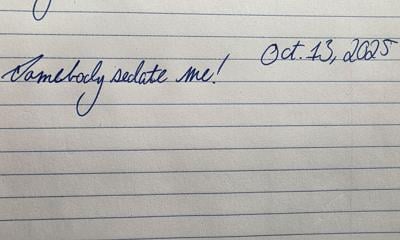 Oct. 13, 2025
Somebody sedate me!